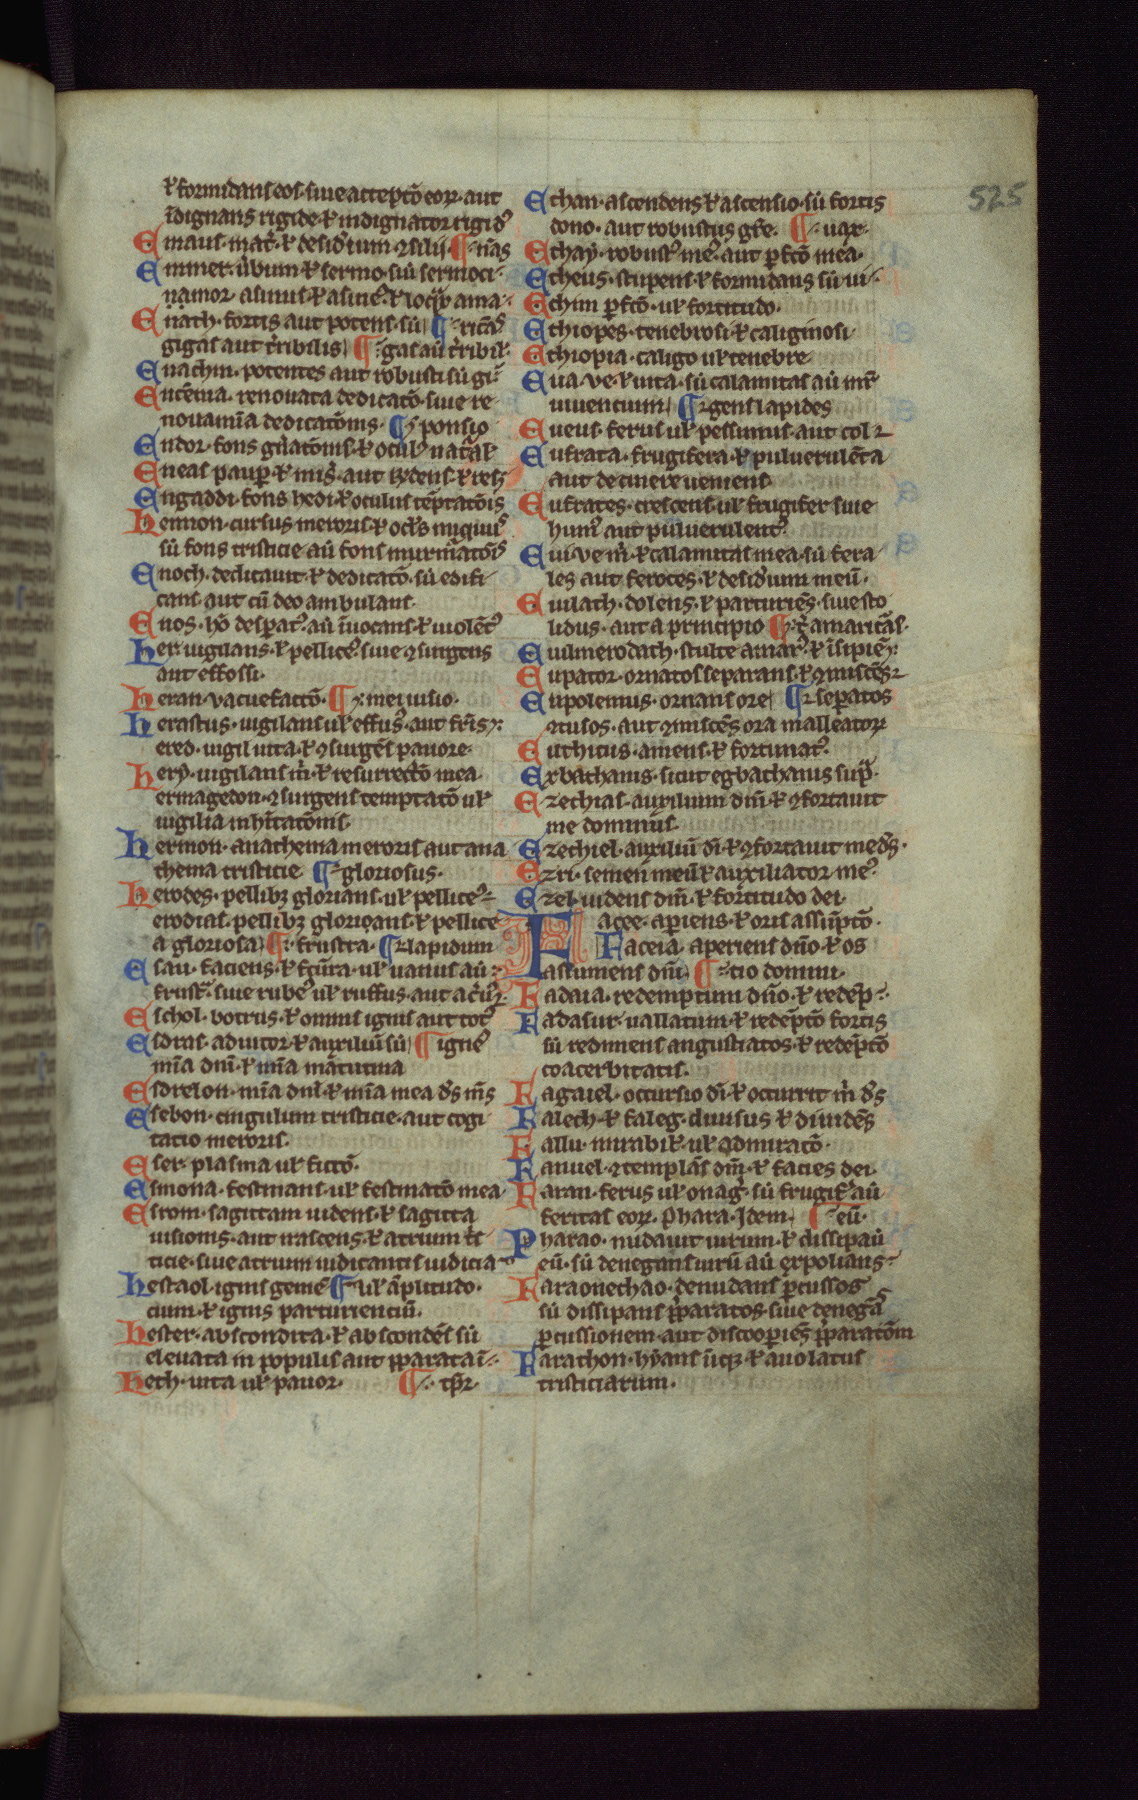 ⁊ formidans eos· siue acceptō eoꝝ· aut
īdignans rigide· ⁊ indignator rigidꝰ
Emaus· mat̄· ⁊ desid̓ium ꝯsilij ¶ nās
Emmer· ūbum ⁊ sermo· siū sermoci
namor asinus ⁊ asine᷒· ⁊ loqꝛ̄ ama
Enach· fortis aut potens· sū ¶ ricās
gigas aut t̓ribilis ¶ gas aū t̓ribil̓
Enachin· potentes aut robusti sū gi
Encēnia· renouata dedicatō· siue re
nouam̄a dedicatōnis· ¶ ponsio
Endor· fons gn̄atōnis· ⁊ ocul᷒ nat̓al᷒
Eneas paup̱· ⁊ mis̓·
Engaddi· fons hedi· ⁊ oculus tēptatōis
Hennon· cursus meroris· ⁊
sū fons tristicie aū fons murm̄atōis
Enoch· dedicauit ⁊ dedicatō· sū edifi
cans· aut cū deo ambulans·
Enos· hō desꝑatꝰ· aū īuocans ⁊ uiolētꝰ
Her· uigilans· ⁊ pelliceꝰ· siue ꝯsurgens
aut effossi·
Heran· uacuefactō· ¶ mei uisio·
Herastus· uigilans ul᷒ effusꝰ· aut
ered· uigil uita· ⁊ ꝯsurgēs pauore·
Hery· uigilans m̄· ⁊ resurrectō mea·
ermagedon· ꝯsurgens temptatō ul᷒
uigilia inhītatōnis·
Hermon· anathema meroris aut ana
thema tristicie ¶ gloriosus·
Herodes· pellibꝫ glorians· ul᷒ pelliceꝰ
erodias· pellibꝫ glorians· ⁊ pellice
a gloriosa ¶ frustra· ¶ lapidum
Esau· faciens· ⁊ fc̄ura· ul᷒ uanus aū
frust̓· siue rubeꝰ ul᷒ ruffus· aut
Eschol· botrus· ⁊ omnis ignis aut totꝰ
Esdras· adiutor· ⁊ auxiliū sū ¶ igneꝰ
mīa dnī· ⁊ mīa matutina
Esdrelon· mīa dnī· ⁊ mīa mea ds̄ m̄s
Esebon· cingulum tristicie· aut cogi
tatio meroris·
Eser· plasma ul᷒ fictō·
Esmona· festinans· ul᷒ festinatō mea·
Esrom· sagittam uidens· ⁊ sagitta
uisionis· aut nascens· ⁊ atrium t̄s
ticie· siue atrum iudicantis iudicia
Hestaol· ignis gemeꝰ ¶ ul᷒ āplitudo·
cium· ⁊ ignis parturienciū·
Hester· abscondita· ⁊ abscondēs sū
eleuata in populis aut p̱parata ī
Heth· uita ul᷒ pauor· ¶ tp̄r·
Ethan· ascendens ⁊ ascensio· sū fortis
dono· aut robustus gr̄e· ¶ uaꝝ·
Ethay· robustꝰ meꝰ· aut ꝑfcō mea·
Etheus· stupens· ⁊ formidans sū ui
Ethim ꝑfcō· ul᷒ fortitudo·
Ethiopes· tenebrosi· ⁊ caliginosi
Ethiopia· caligo ul᷒ tenebre
Eua· ve· ⁊ uita· sū calamitas aū mr̄
uiuentium ¶ gens lapides
Eueus· ferus ul᷒ pessimus· aut colꝯ
Eufrata· frugifera· ⁊ puluerulēta
aut de cinere ueniens
Eufrates· crescens· ul᷒ frugifer siue
humꝰ aut puluerulentꝰ·
Eui· ve m̄· ⁊ calamitas mea· sū fera
les aut feroces· ⁊ desid̓ium meū·
Euilath· dolens· ⁊ parturiēs· siue sto
lidus· aut a principio ¶ amaricās·
Euilmerodach· stulte amarꝰ· ⁊ īsipiēs
Eupator· ornatos separans· ⁊ ꝯmiscēs
Eupolemus· ornans ore ¶ seꝑatos
ꝯcusos· aut ꝯmiscēs ora malleatoꝝ
Euthicus· amens· ⁊ fortunatꝰ·
Exbathanis· sicut egbathanis sup̓·
Ezechias· auxilium dnī· ⁊ ꝯfortauit
me dominus·
Ezechiel· auxiliū dī· ⁊ ꝯfortauit me ds̄·
Ezri· semen meū ⁊ auxiliator meꝰ·
Ezel· uidens dm̄· ⁊ fortitudo dei·
Facee· aperiens· ⁊ oris assūptō·
Faceia aperiens dn̄o· ⁊ os
assumens dnī ¶ tio domini·
Fadaia· redemptum dn̄o· ⁊ redēp
Fadasur· uallatum· ⁊ redēptō fortis
sū redimens angustiatos· ⁊ redēptō
coacerbitatis·
Fagaiel· occursio dī· ⁊ occurrit m̄ ds̄
Falech· ⁊ faleg· diuisus ⁊ diuidēs
Fallu· mirabil᷒· ul᷒ admiratō·
Fanuel· ꝯtemplās dm̄· ⁊ facies dei·
Faran· ferus ul᷒ onag̓· sū frugif̓ aū
feritas eoꝝ· Phara· Idem ¶ eū·
Pharao· nudauit uirum· ⁊ dissipaū
eū· sū denegans uirū aū expolians
Faraonechao· denudans ꝑcussos
sū dissipans p̄paratos· siue denegās
ꝑcussionem· aut discooꝑiēs p̄paratōm
Farathon· hyans ūtqꝫ· ⁊ auolatus
tristiciarum·
525